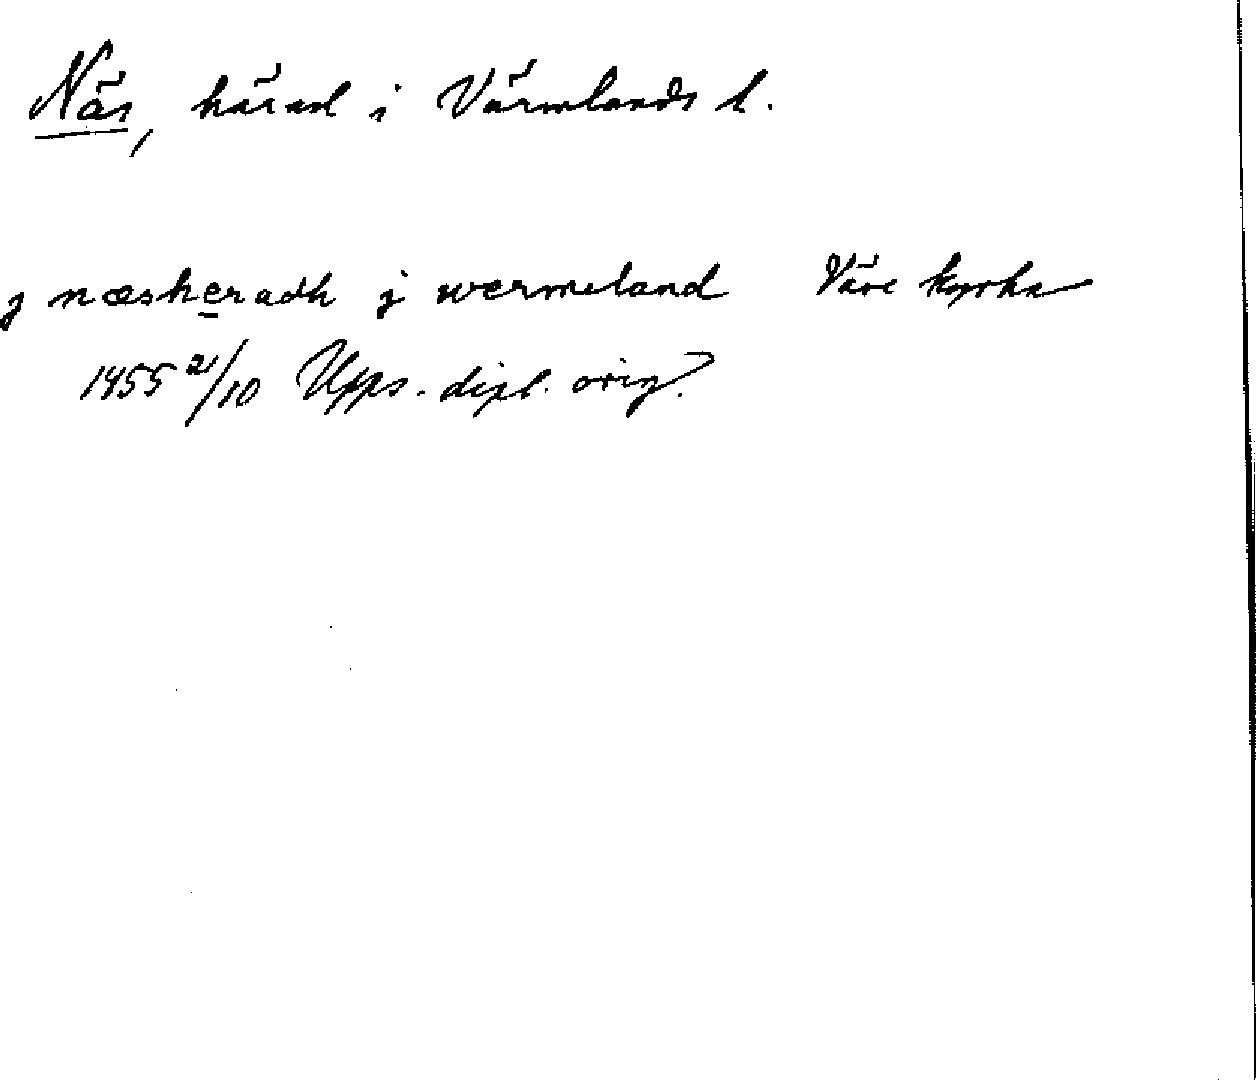 Näs, härad i Värmlands l.
j næsheradh j wermeland Väse kyrka
1455 21/10 Upps. dipl. orig.